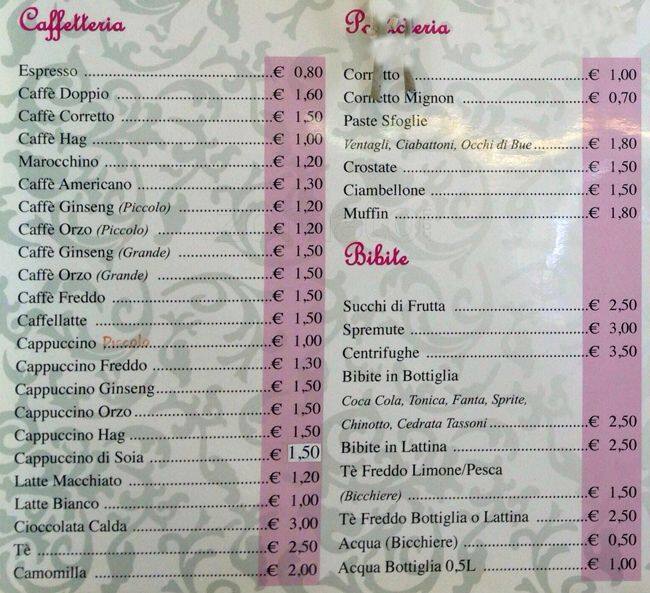 Caffetteria
Espresso € 0,80
Caffè Doppio € 1,60
Caffè Corretto € 1,50
Caffè Hag € 1,00
Marocchino € 1,20
Caffè Americano € 1,30
Caffè Ginseng (Piccolo) € 1,20
Caffè Orzo (Piccolo) € 1,20
Caffè Ginseng (Grande) € 1,50
Caffè Orzo (Grande) € 1,50
Caffè Freddo € 1,50
Caffellatte € 1,50
Cappuccino Piccolo € 1,00
Cappuccino Freddo € 1,30
Cappuccino Ginseng € 1,50
Cappuccino Orzo € 1,50
Cappuccino Hag € 1,50
Cappuccino di Soia € 1,50
Latte Macchiato € 1,20
Latte Bianco € 1,00
Cioccolata Calda € 3,00
Tè € 2,50
Camomilla € 2,00
Cornetto € 1,00
Cornetto Mignon € 0,70
Paste Sfoglie
Ventagli, Ciabattoni, Occhi di Bue € 1,80
Crostate € 1,50
Ciambellone € 1,50
Muffin € 1,80
Bibite
Succhi di Frutta € 2,50
Spremute € 3,00
Centrifughe € 3,50
Bibite in Bottiglia
Coca Cola, Tonica, Fanta, Sprite,
Chinotto, Cedrata Tassoni € 2,50
Bibite in Lattina € 2,50
Tè Freddo Limone/Pesca
(Bicchiere) € 1,50
Tè Freddo Bottiglia o Lattina € 2,50
Acqua (Bicchiere) € 0,50
Acqua Bottiglia 0,5L € 1,00